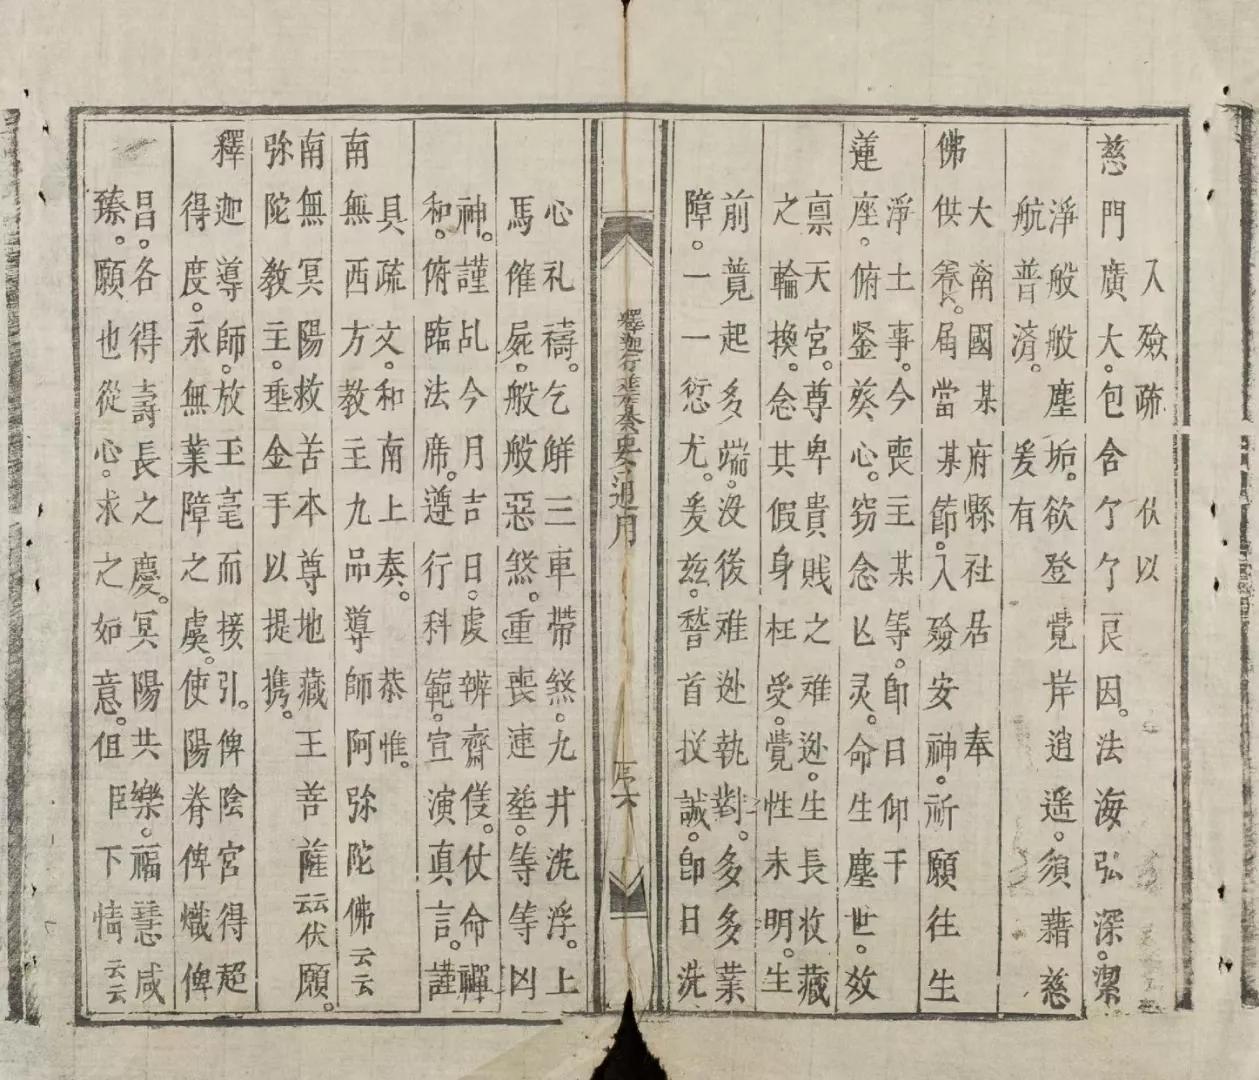 入殮疏 伏以
慈門廣大。包含亇亇良因。法海弘深。潔
淨般般塵垢。欲登覺岸逍遥。須藉慈
航普濟。爰有
大南國某府縣社居 奉
佛供養。届當某節。入殮安神。祈願往生
淨土事。今喪主某等。即日仰干
蓮座。俯鉴葵心。窃念亡灵。命生塵世。效
禀天宮。尊卑貴賎之难逊。生長收藏
之輪換。念其假身枉受。覺性未明。生
前起多端。没後难逊執對。多多業
障。一一愆尤。爰兹。稽首投誠。即日洗
釋迦行塟
六
心礼禱。乞觧三車帶煞。九井沈浮。上
馬催屍。般般惡煞。重喪連塟。等等凶
神。謹乩今月吉日。虔辨齋筵。仗命禪
和。俯臨法席。遵行科範。宣演真言。謹
具疏文。和南上奏。 恭惟。
南無西方教主九品導師阿弥陀佛云云
南無冥陽救苦本尊地藏王菩薩云云伏願。
弥陀教主。垂金手以提携。
釋迦導師。放玉毫而接引。俾陰宮得超
得度。永無業障之虞。使陽眷俾熾俾
昌。各得壽長之慶。冥陽共樂。福慧咸
臻。願也從心。求之如意。但臣下情云云